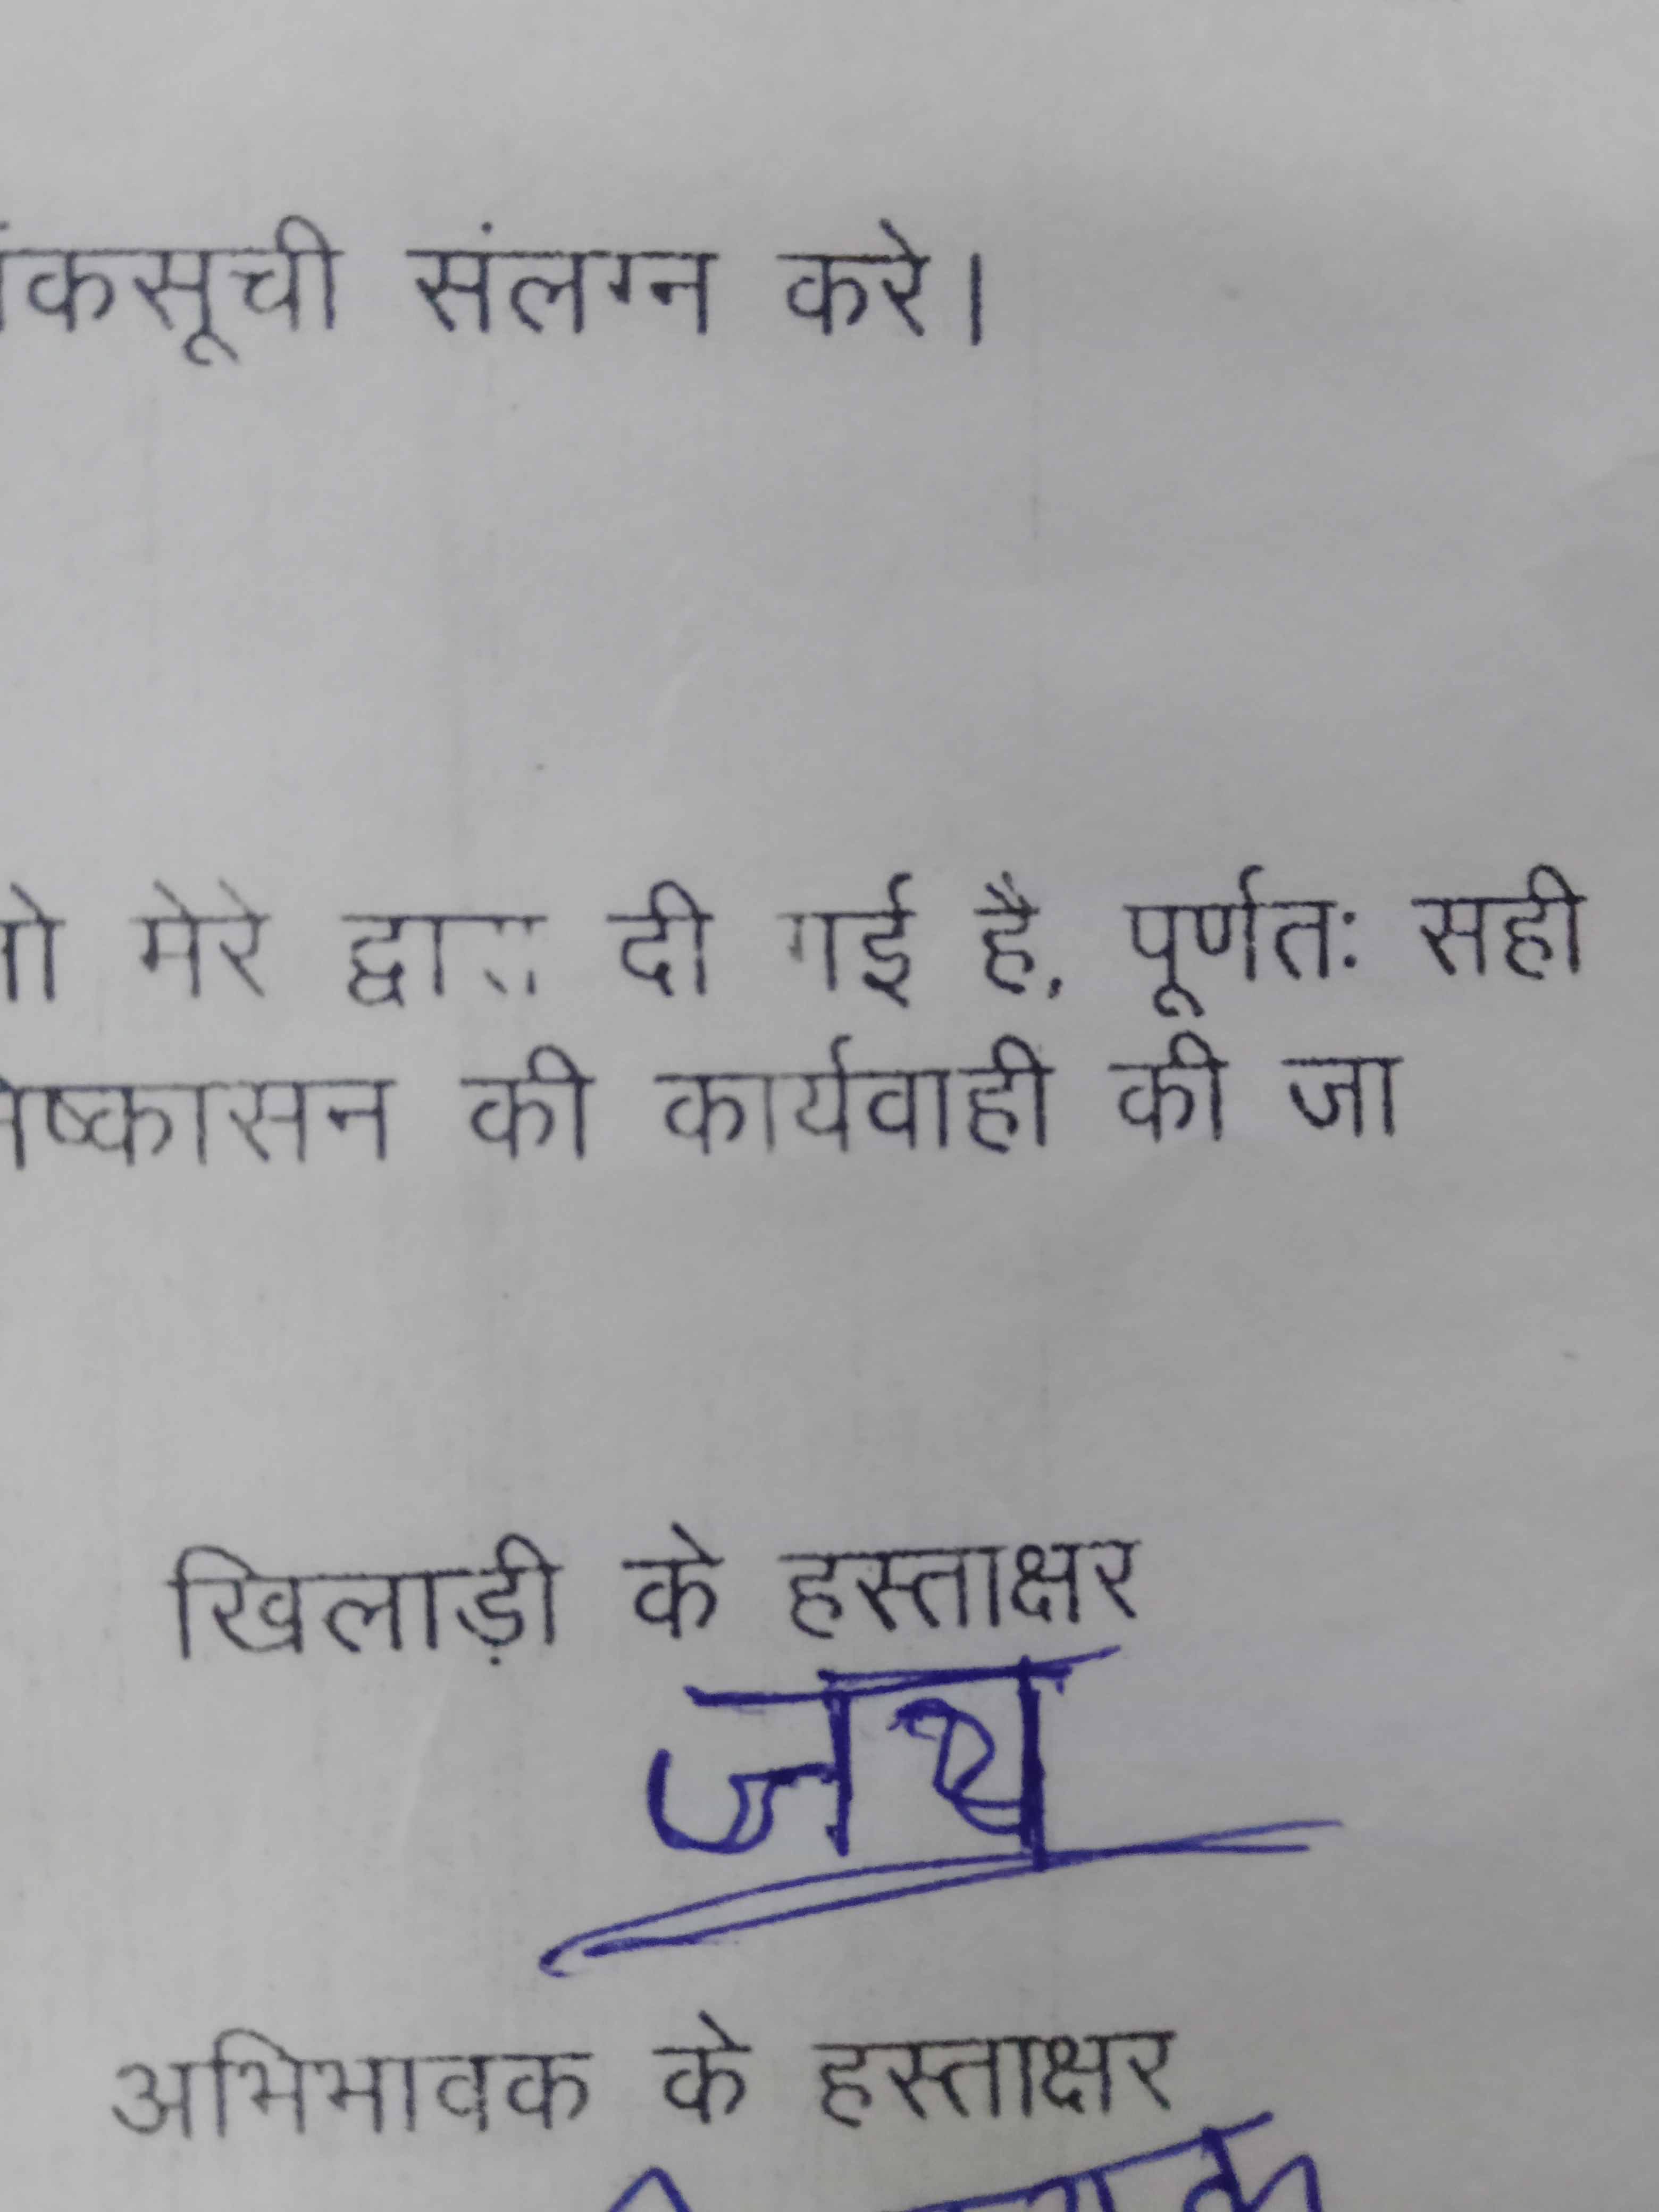 ंकसूची संलग्न करे।
मेरे द्वारा दी गई है, पूर्णतः सही
ष्कासन की कार्यवाही की जा
खिलाड़ी के हस्ताक्षर
जय
अभिभावक के हस्ताक्षर